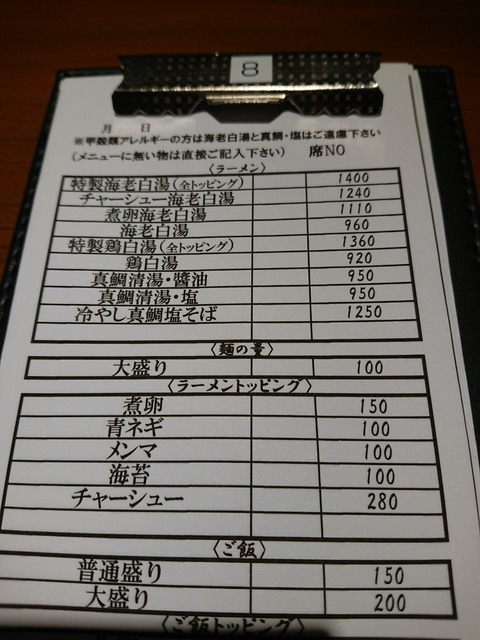 8
月 日
※甲殻類アレルギーの方は海老白湯と真鯛・塩はご遠慮下さい
(メニューに無い物は直接ご記入下さい) 席NO
〈ラーメン〉
特製海老白湯(全トッピング) 1400
チャーシュー海老白湯 1240
煮卵海老白湯 1110
海老白湯 960
特製鶏白湯(全トッピング) 1360
鶏白湯 920
真鯛清湯・醤油 950
真鯛清湯・塩 950
冷やし真鯛塩そば 1250
〈麺の量〉
大盛り 100
〈ラーメントッピング〉
煮卵 150
青ネギ 100
メンマ 100
海苔 100
チャーシュー 280
〈ご飯〉
普通盛り 150
大盛り 200
〈ご飯トッピング〉